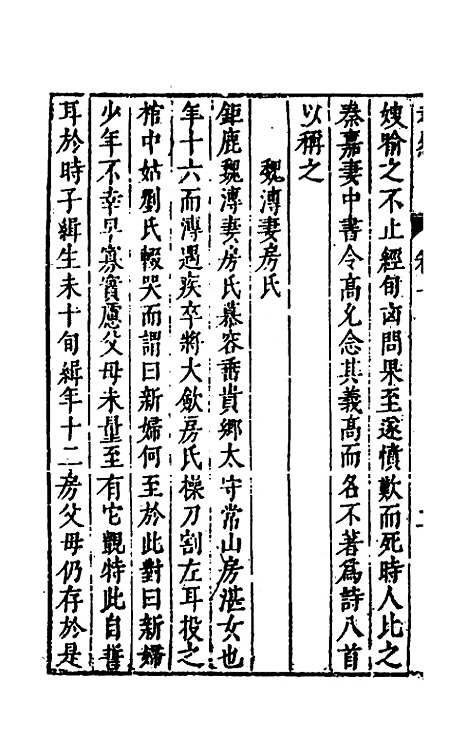 嫂喻之不止經旬凶問果至遂憤歎而死時人比之
秦嘉妻中書令高允念其義高而名不著爲詩八首
以稱之
魏溥妻房氏
鉅鹿魏溥妻房氏慕容垂貴鄉太守常山房湛女也
年十六而溥遇疾卒將大斂房氏操刀割左耳投之
棺中姑劉氏輟哭而謂曰新婦何至於此對曰新婦
少年不幸早寡實慮父母未量至有它觀特此自誓
耳於時子緝生未十旬緝年十二房父母仍存於是